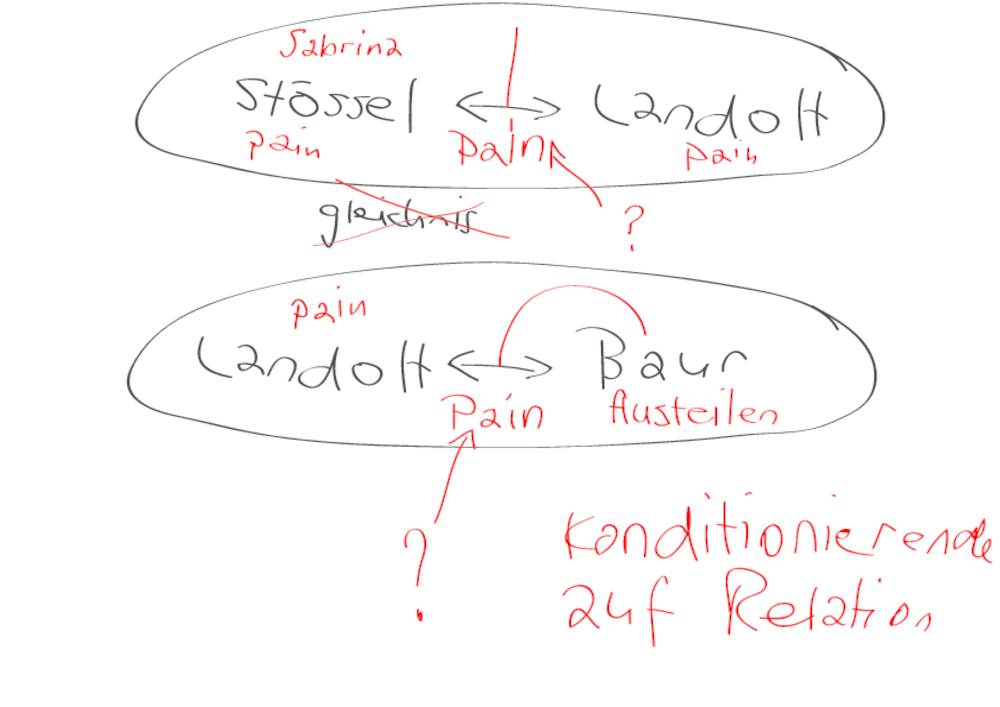 Sabrina
Stössel <-> Landolt
pain pain pain
gleichnis
?
pain
Landolt <-> Baur
Pain Austeilen
?
Konditionierende
auf Relation